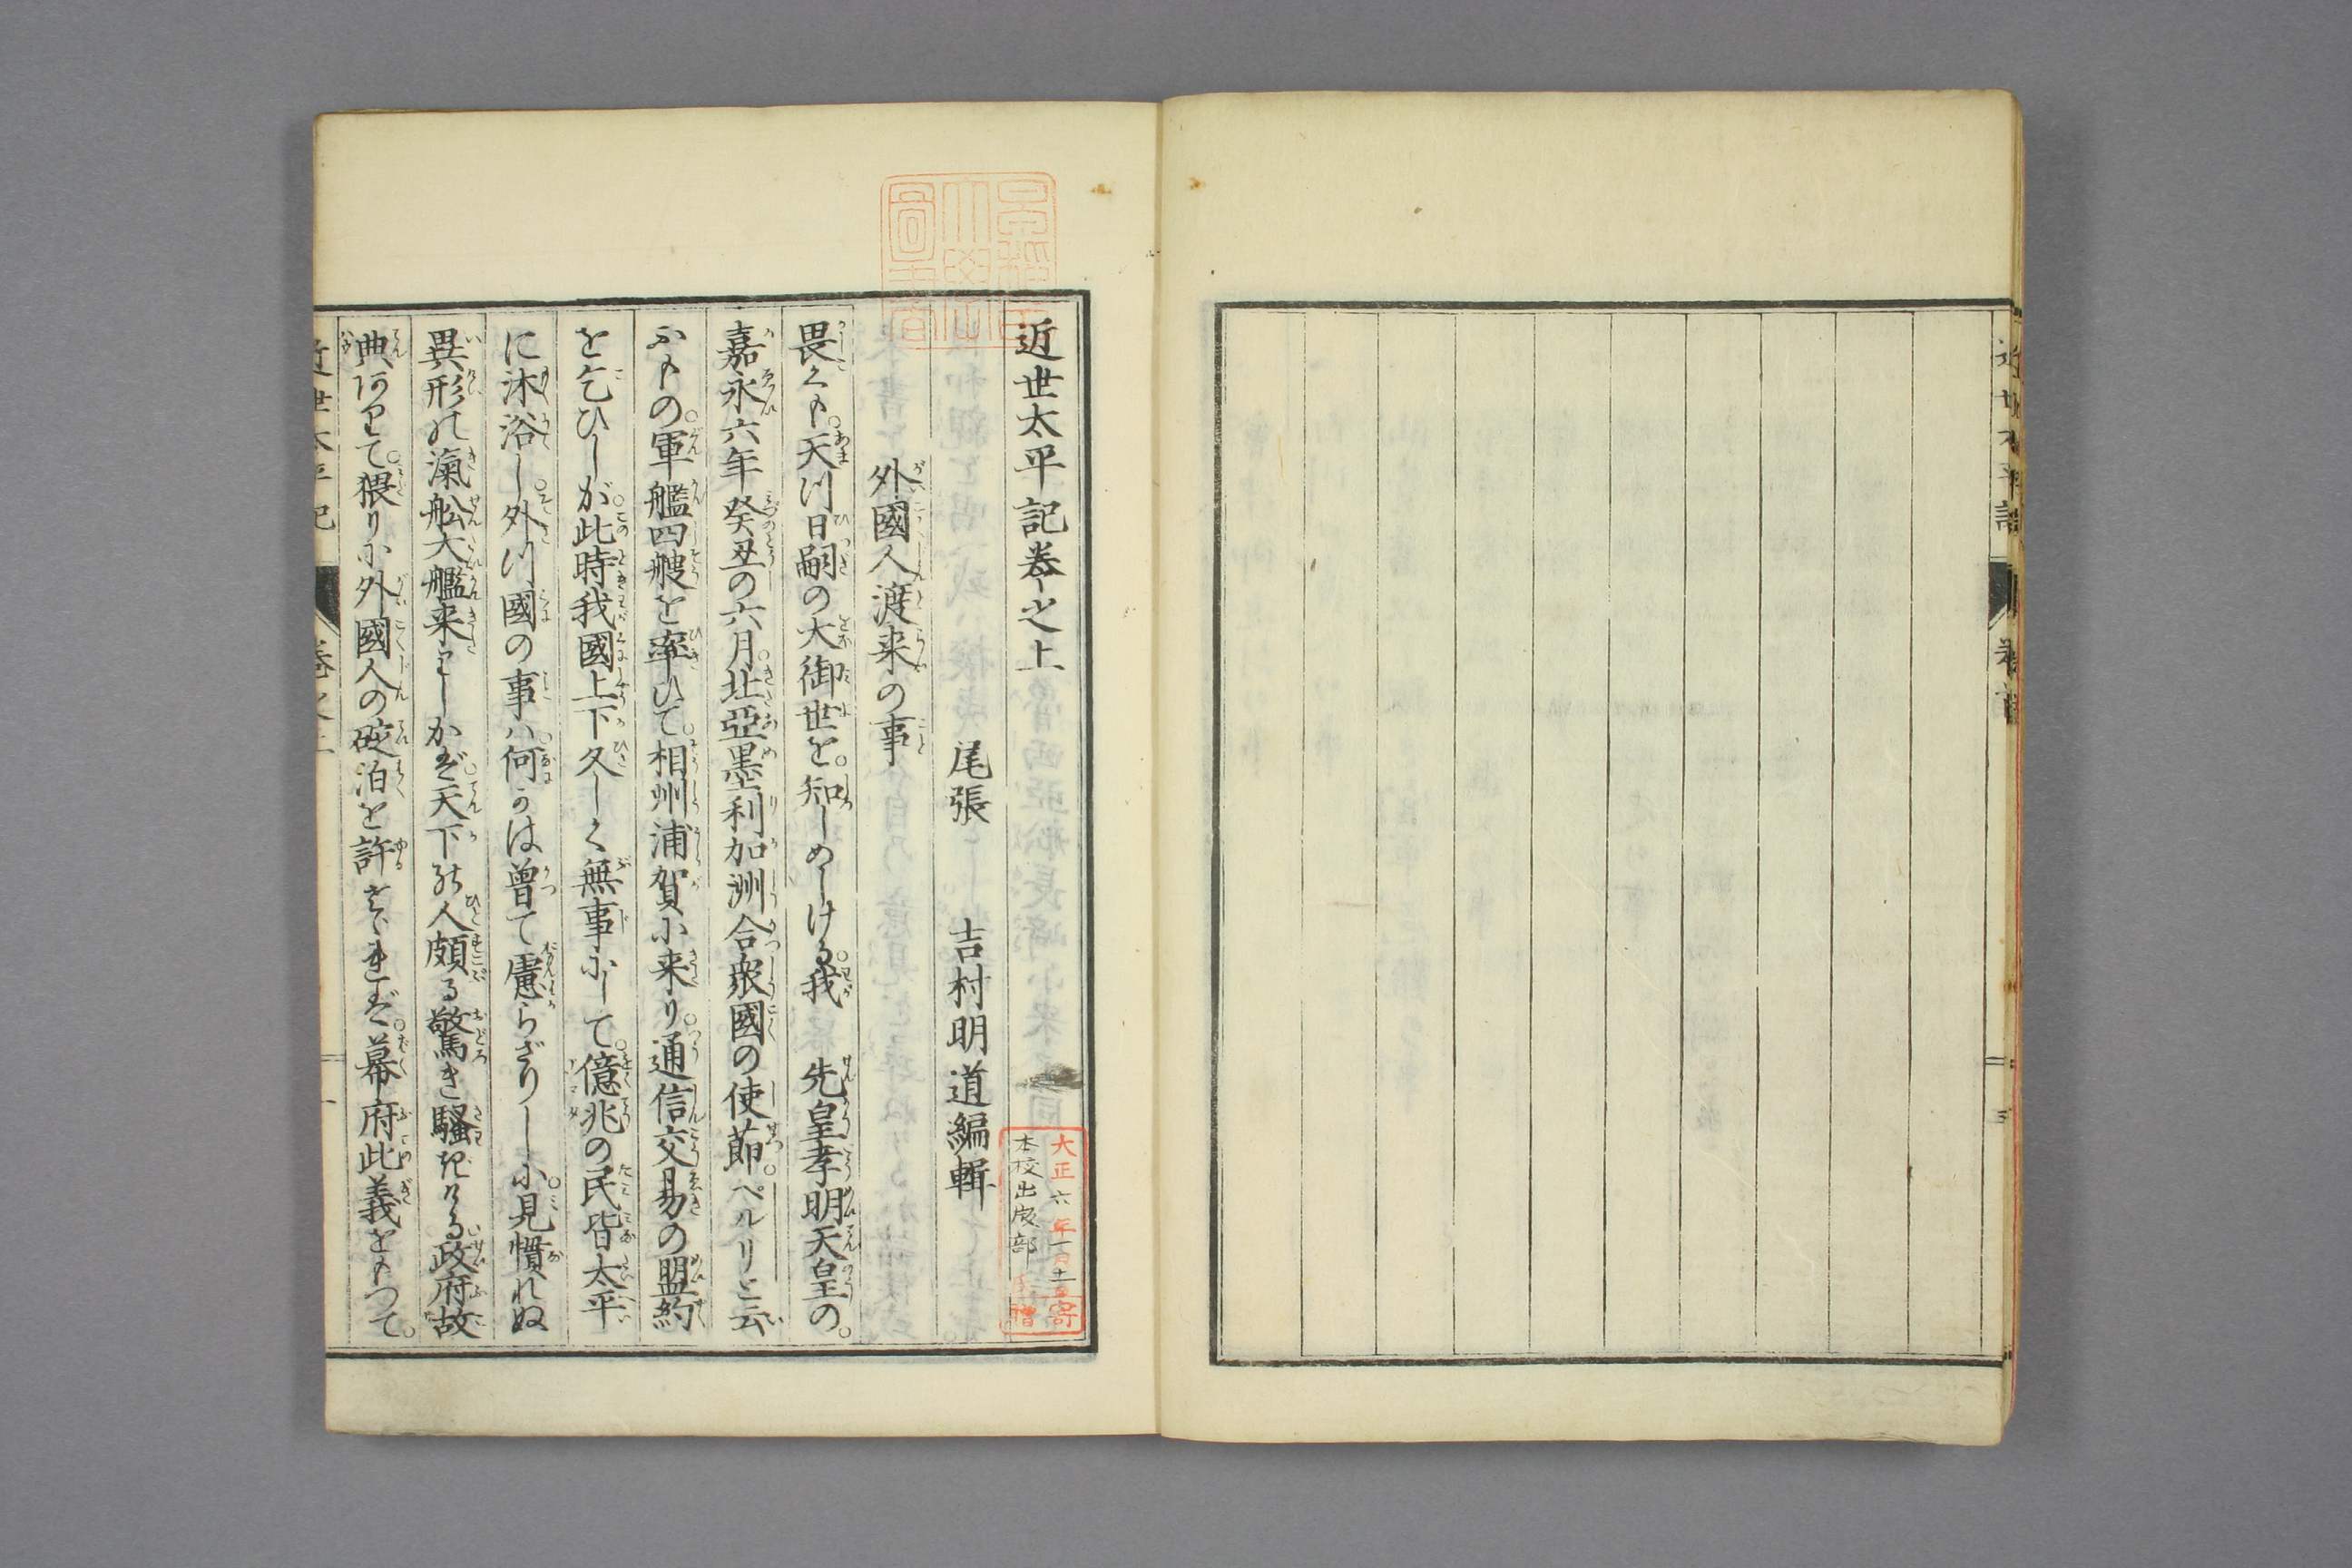 近世太平記卷之上
尾張 吉村明道編輯
外國人渡来の事
畏くも。天つ日嗣の大御世を。知しめしける。我 先皇孝明天皇の。
嘉永六年癸丑の六月。北亞墨利加洲合衆國の使節。ペルリと云
ふもの。軍艦四艘を率ひて。相州浦賀に来り。通信交易の盟約
を乞ひしが。此時我國上下久しく無事にして。億兆の民皆太平
に沐浴し。外つ國の事ハ。何かは曾て慮らざりしに。見慣れぬ
異形の滊舩大艦来りしかば。天下の人頗る驚き騒ぎける。政府故
典ありて。猥りに外國人の碇泊を許さゞれば。幕府此義をもつて。
近世太平記 卷之上
大正六年一月十一日寄
本校出版部 贈
近世太平記 卷首 三